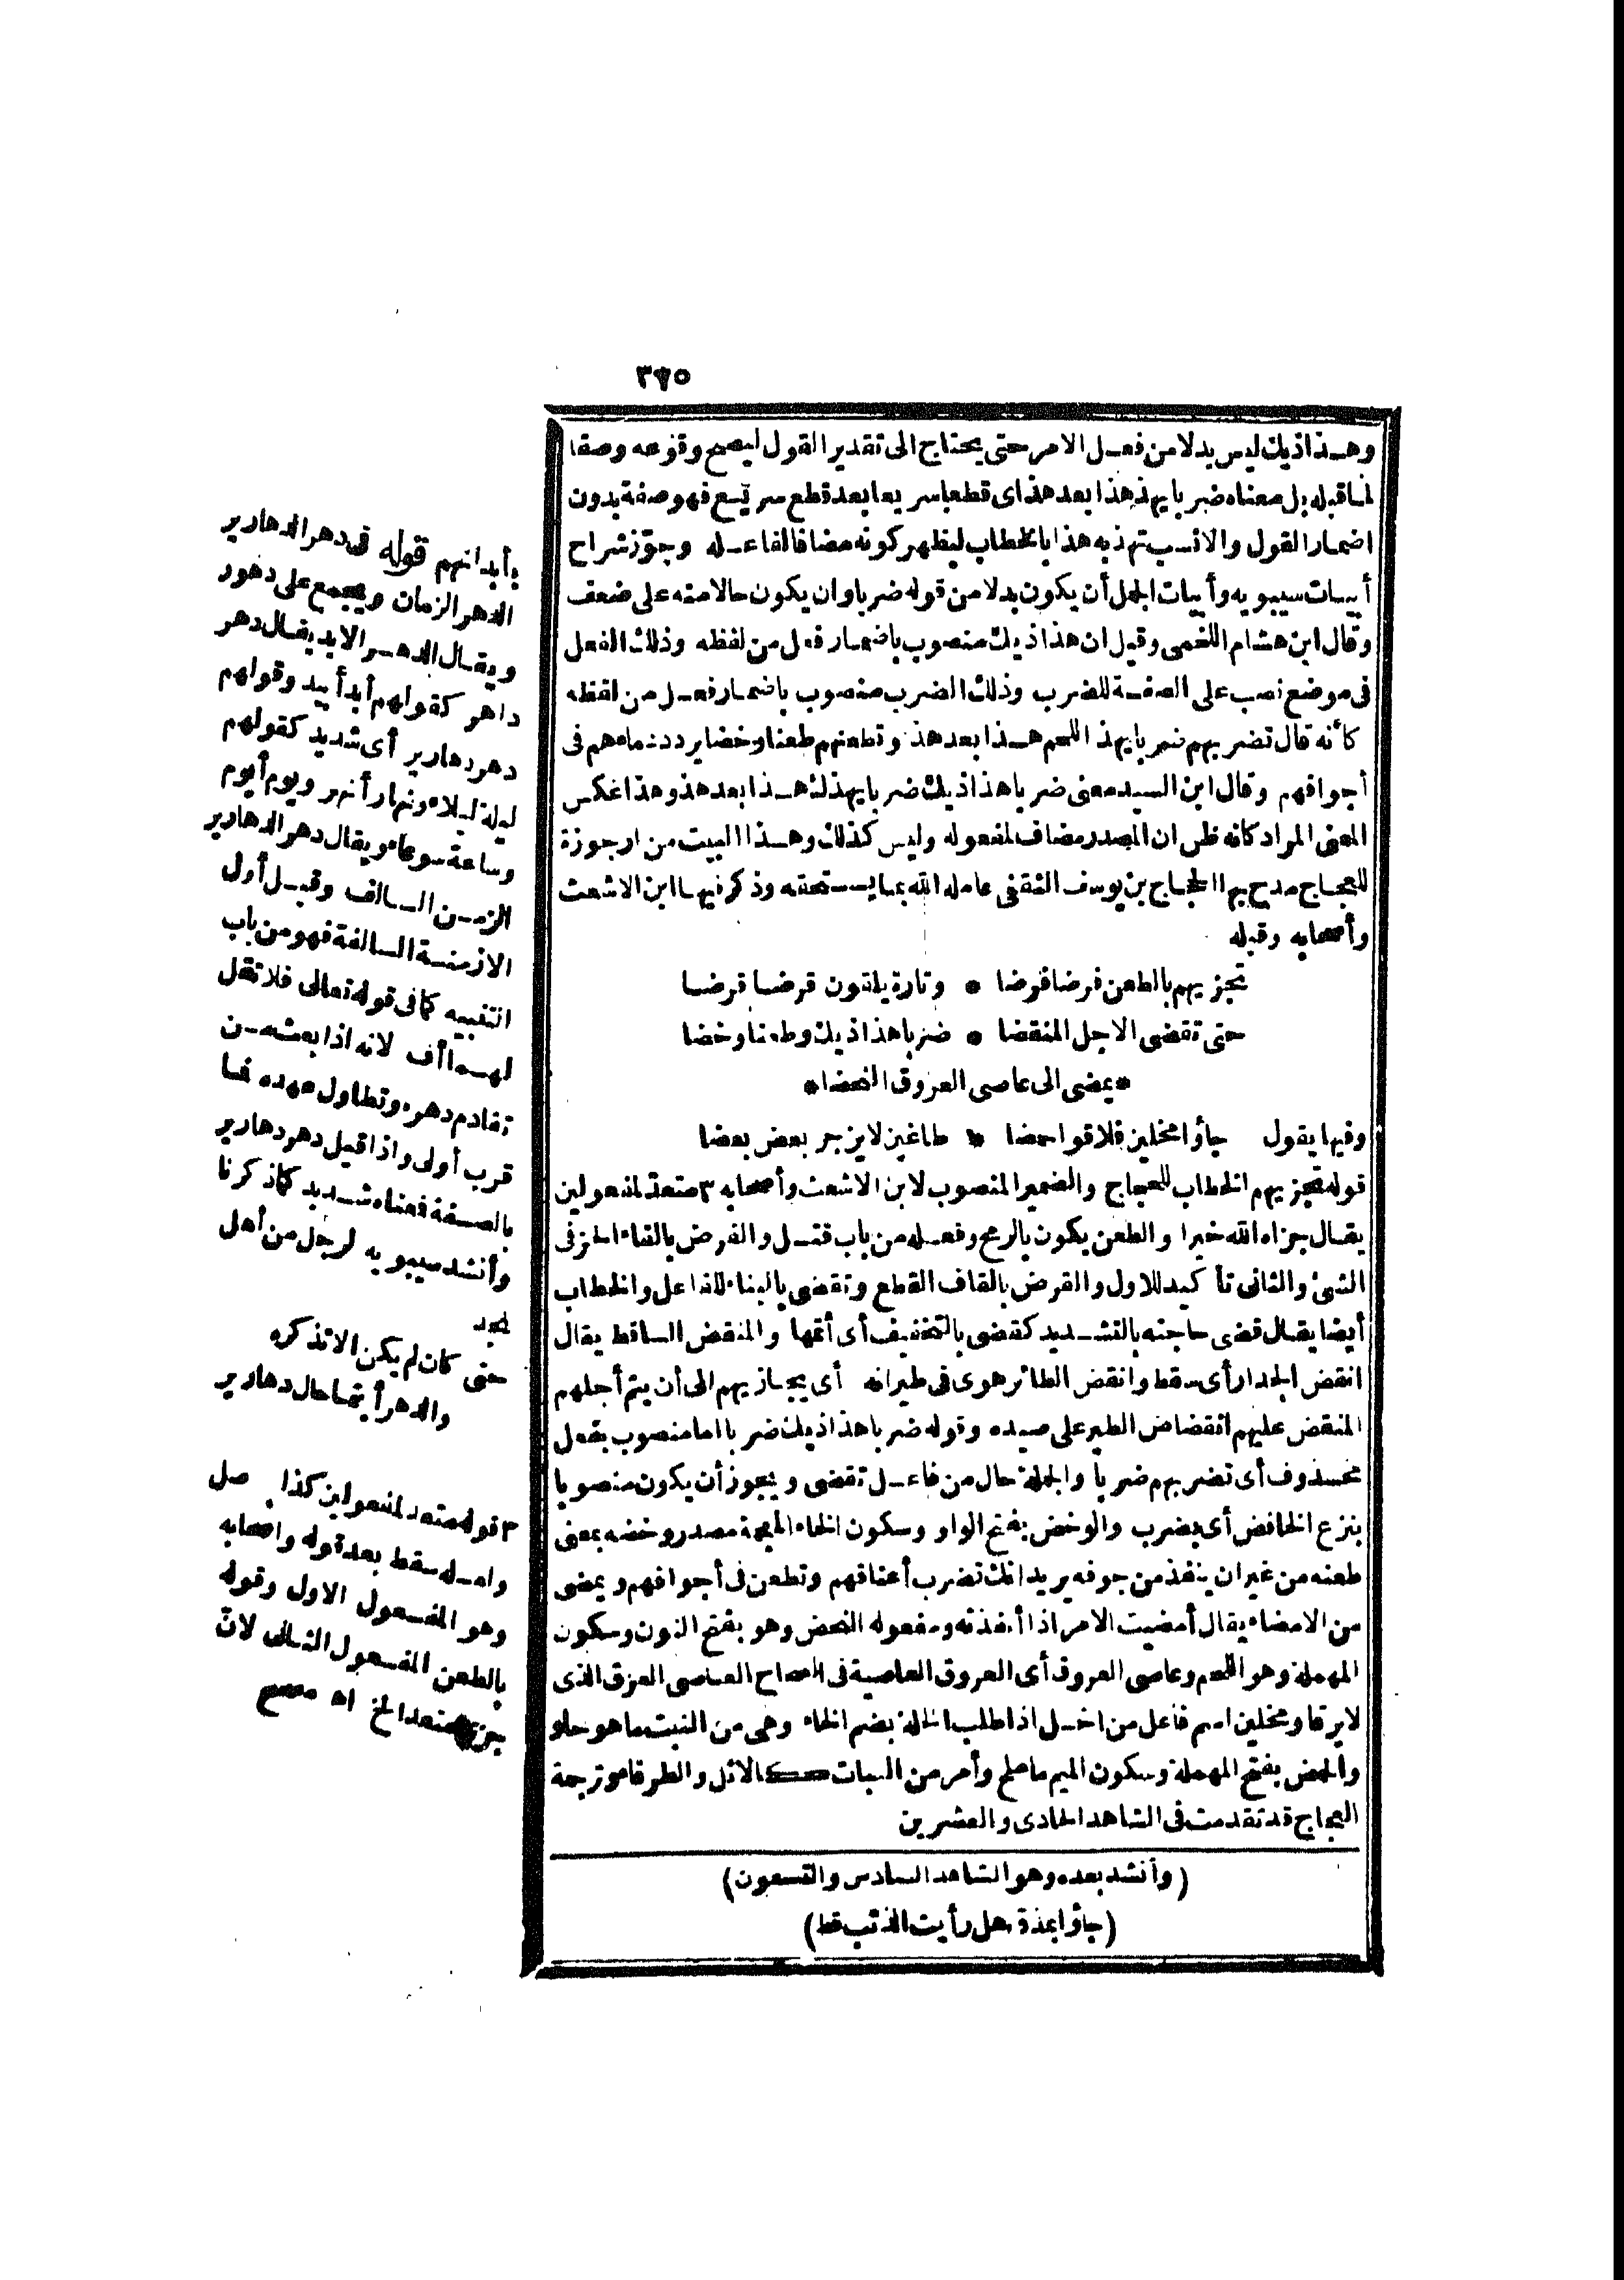 ٣٧٥
وهذاذيك ليس بدلا من فعل الامر حتى يحتاج الى تقدير القول ليصح وقوعه وصفا
لما قبله بل معناه ضربا يهذ هذا بعد هذا اى قطعا سريعا بعد قطع سريع فهو صفة بدون
اضمار القول والانسب تهذ به هذا بالخطاب ليظهر كونه مضافا لفاعله وجوّز شراح
أبيات سيبويه وأبيات الجمل أن يكون بدلا من قوله ضربا وان يكون حالا منه على ضعف
وقال ابن هشام اللخمى وقيل ان هذاذيك منصوب باضمار فعل من لفظه وذلك الفعل
فى موضع نصب على الصفة للضرب وذلك الضرب منصوب باضمار فعل من لفظه
كأنه قال تضربهم ضربا يهذ اللحم هذا بعد هذ وتطعنهم طعنا وخضا يردد دماءهم فى
أجوافهم وقال ابن السيد معنى ضربا هذاذيك ضربا يهذك هذا بعد هذ وهذا عكس
المعنى المراد كانه ظن ان المصدر مضاف لمفعوله وليس كذلك وهذا البيت من ارجوزة
للعجاج مدح بها الحجاج بن يوسف الثقفى عامله الله بما يستحقه وذكر فيها ابن الاشعث
وأصحابه وقبله
تجزيهم بالطعن فرضا فرضا * وتارة يلقون قرضا قرضا
حتى تقضى الاجل المنقضا * ضربا هذاذيك وطعنا وخضا
*يمضى الى عاصى العروق النحضا*
وفيها يقول جاؤا مخلين فلاقوا حمضا * طاغين لا يزجر بعض بعضا
قوله تجزيهم الخطاب للحجاج والضمير المنصوب لابن الاشعث وأصحابه ٣ متعد لمفعولين
يقال جزاه الله خيرا والطعن يكون بالرمح وفعله من باب قتل والفرض بالفاء الحز فى
الشئ والثانى تأكيد للاول والقرض بالقاف القطع وتقضى بالبناء للفاعل والخطاب
أيضا يقال قضى حاجته بالتشديد كقضى بالتخفيف أى أتمها والمنقض الساقط يقال
انقض الجدار أى سقط وانقض الطائر هوى فى طيرانه أى يجازيهم الى أن يتم أجلهم
المنقض عليهم انقضاض الطير على صيده وقوله ضربا هذاذيك ضربا اما منصوب بفعل
محذوف أى تضربهم ضربا والجملة حال من فاعل تقضى ويجوز أن يكون منصوبا
بنزع الخافض أى بضرب والوخض بفتح الواو وسكون الخاء المعجمة مصدر وخضه بمعنى
طعنه من غير ان ينفذ من جوفه يريد انك تضرب أعناقهم وتطعن فى أجوافهم ويمضى
من الامضاء يقال أمضيت الامر اذا أنفذته ومفعوله النحض وهو بفتح النون وسكون
المهملة وهو اللحم وعاصى العروق أى العروق العاصية فى الصحاح العاصى العرق الذى
لا يرقا ومخلين اسم فاعل من اخل اذا طلب الخلة بضم الخاء وهى من النبت ما هو حلو
والحمض بفتح المهملة وسكون الميم ما ملح وأمر من النبات كالاثل والطرفا وترجمة
العجاج قد تقدمت فى الشاهد الحادى والعشرين
(وأنشد بعده وهو الشاهد السادس والتسعون)
(جاؤا بمذق هل رأيت الذئب قط)
بأبدانهم قوله فى دهر الدهارير
الدهر الزمان ويجمع على دهور
ويقال الدهر الابد يقال دهر
داهر كقولهم أبد أبيد وقولهم
دهر دهارير أى شديد كقولهم
ليلة ليلاء ونهار أنهر ويوم أيوم
وساعة سوعاء ويقال دهر الدهارير
الزمن السالف وقيل أول
الازمنة السالفة فهو من باب
التنبيه كما فى قوله تعالى فلا تقل
لهما أف لانه اذا بعد من
تقادم دهره وتطاول عهده فما
قرب أولى واذا قيل دهر دهارير
بالصفة فمعناه شديد كما ذكرنا
وأنشد سيبويه لرجل من أهل
نجد
حتى كان لم يكن الا تذكره
والدهر أيتما حال دهارير
٣ قوله متعد لمفعولين كذا بالاصل
ولعله سقط بعد قوله واصحابه
وهو المفعول الاول وقوله
بالطعن المفعول الثانى لان
جزى متعد الخ اه مصحح